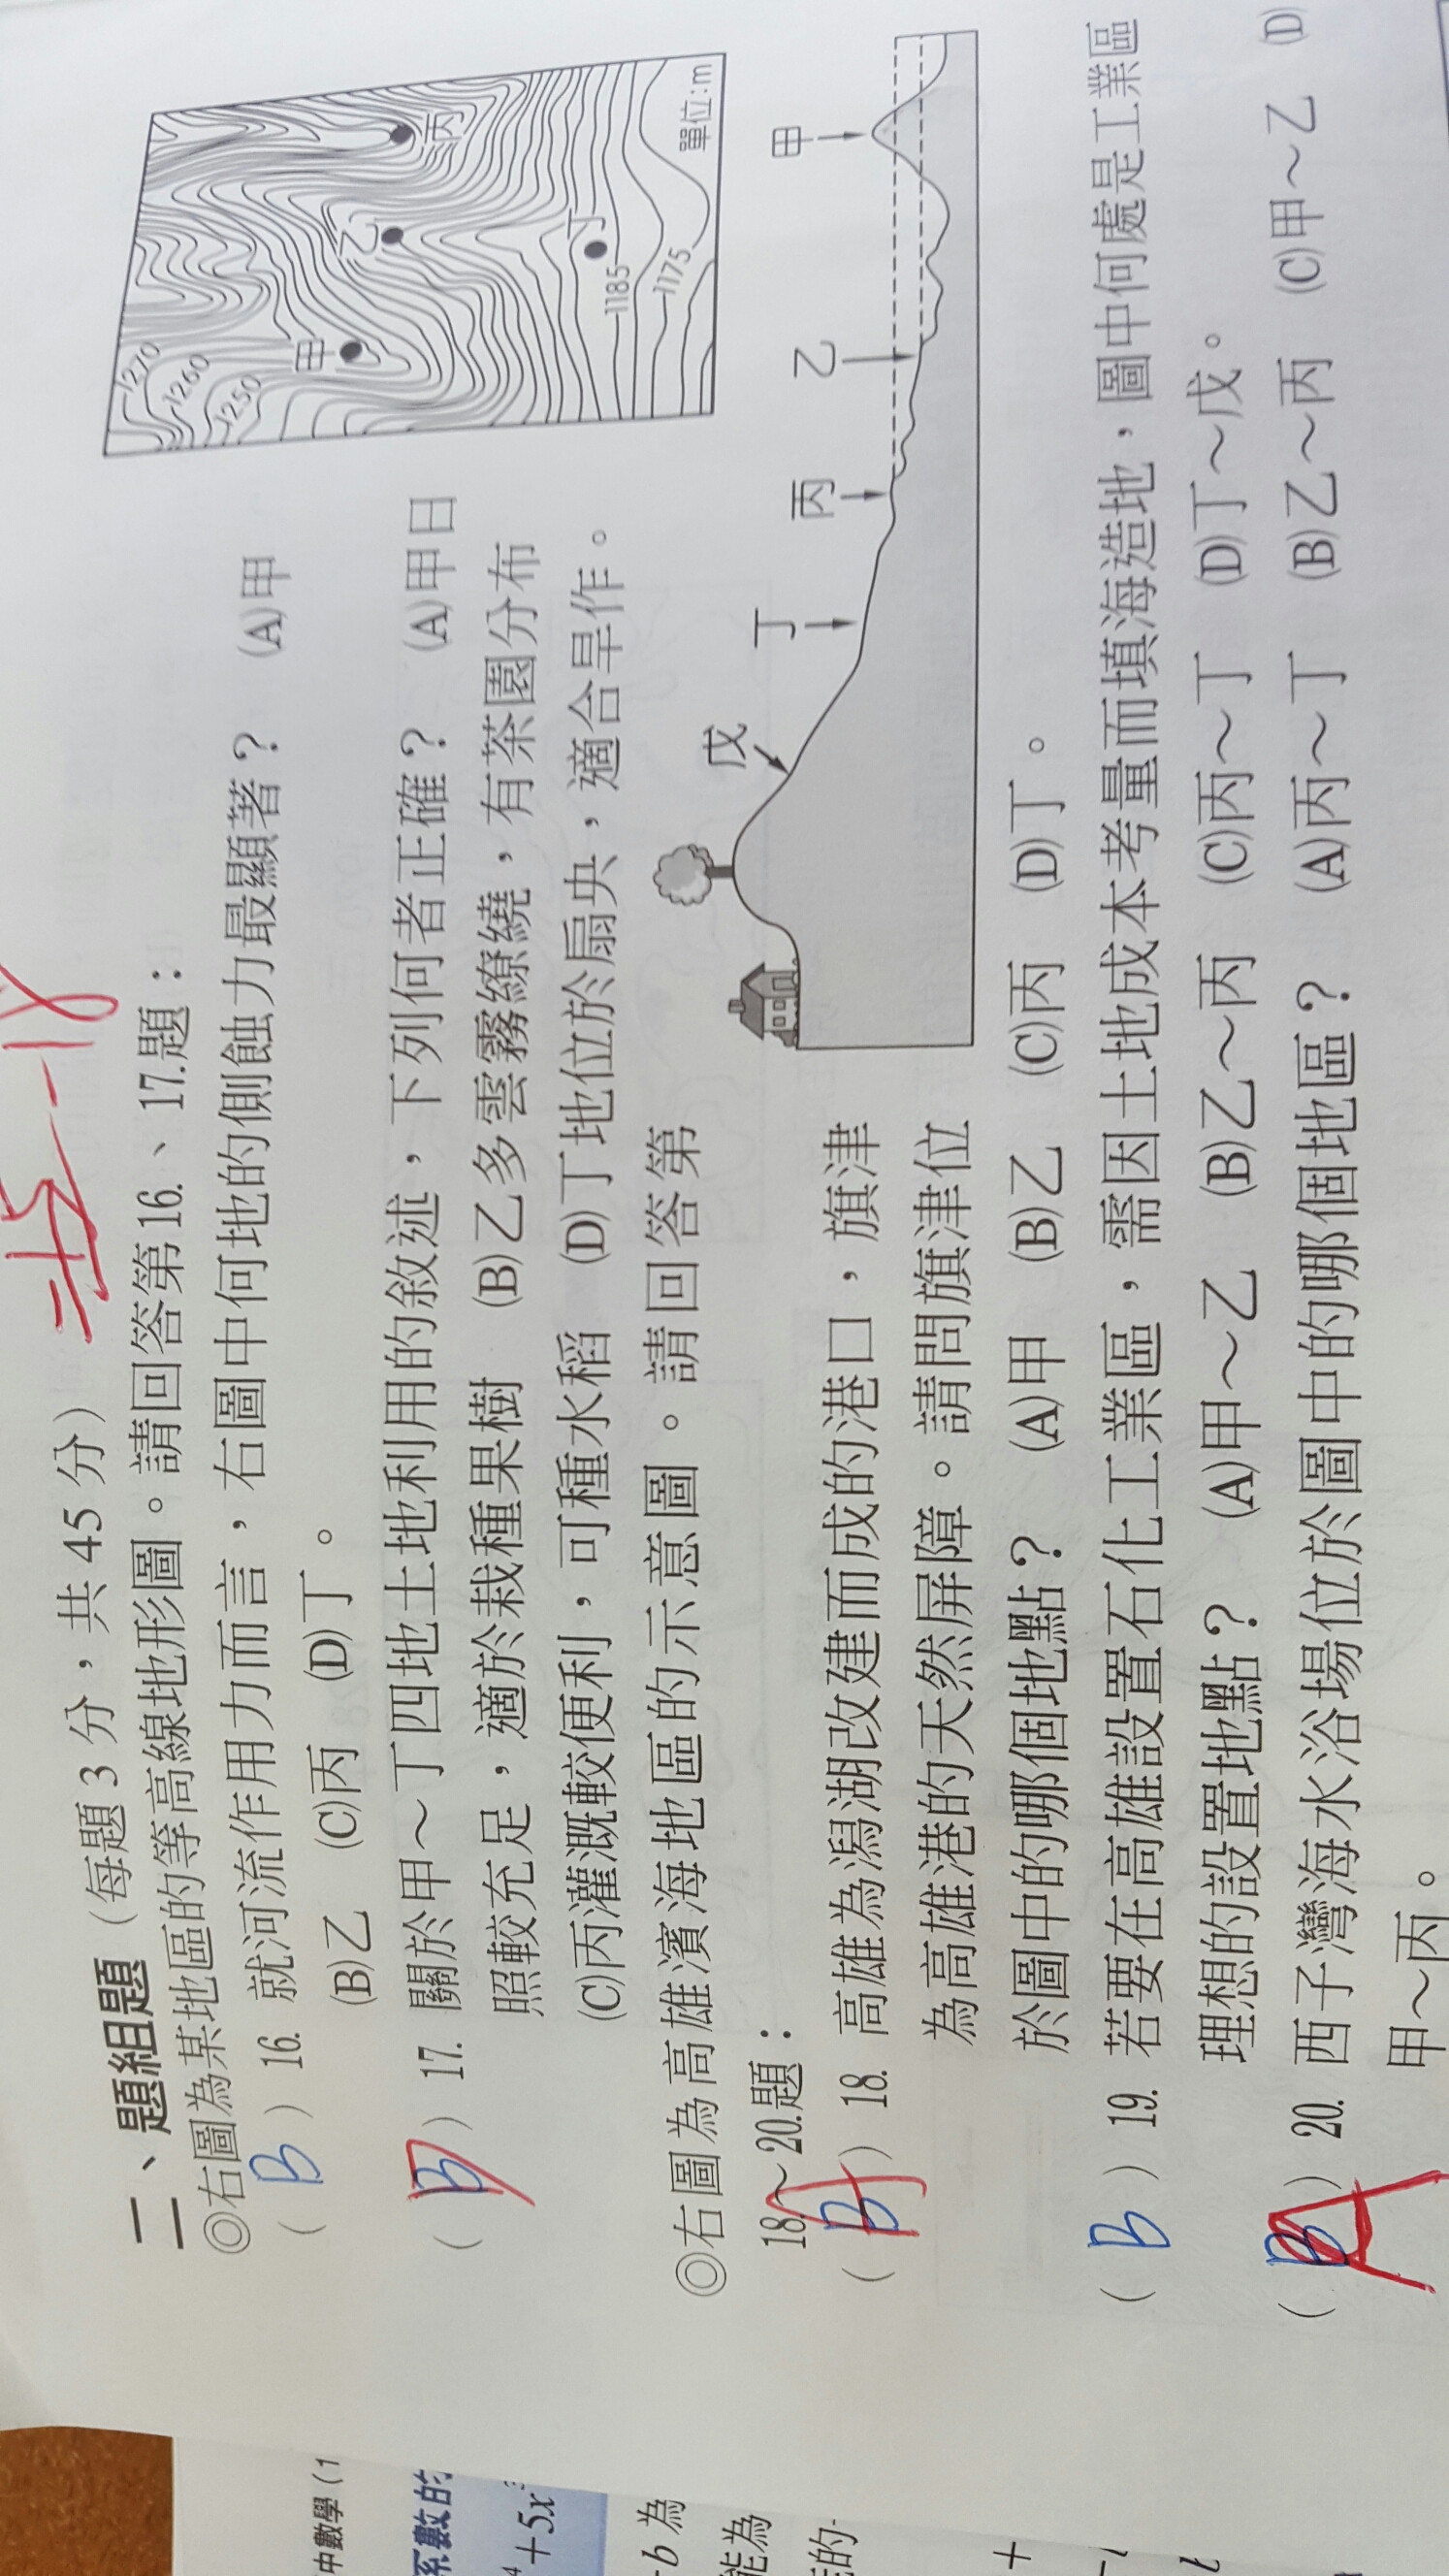 二、題組題（每題 3 分，共 45 分）
◎右圖為某地區的等高線地形圖。請回答第 16.、17.題：
( B ) 16. 就河流作用力而言，右圖中何地的側蝕力最顯著？ (A)甲
(B)乙 (C)丙 (D)丁。
( B ) 17. 關於甲～丁四地土地利用的敘述，下列何者正確？ (A)甲日
照較充足，適於栽種果樹 (B)乙多雲霧繚繞，有茶園分布
(C)丙灌溉較便利，可種水稻 (D)丁地位於扇央，適合旱作。
1270
1260
1250
甲
乙
丙
丁
1185
1175
單位:m
◎右圖為高雄濱海地區的示意圖。請回答第
18.～20.題：
( B ) 18. 高雄為潟湖改建而成的港口，旗津
為高雄港的天然屏障。請問旗津位
於圖中的哪個地點？ (A)甲 (B)乙 (C)丙 (D)丁。
戊
丁
丙
乙
甲
( B ) 19. 若要在高雄設置石化工業區，需因土地成本考量而填海造地，圖中何處是工業區
理想的設置地點？ (A)甲～乙 (B)乙～丙 (C)丙～丁 (D)丁～戊。
( B ) 20. 西子灣海水浴場位於圖中的哪個地區？ (A)丙～丁 (B)乙～丙 (C)甲～乙 (D)
甲～丙。
A
中數學 (1
系數的
+5x
b 為
能為